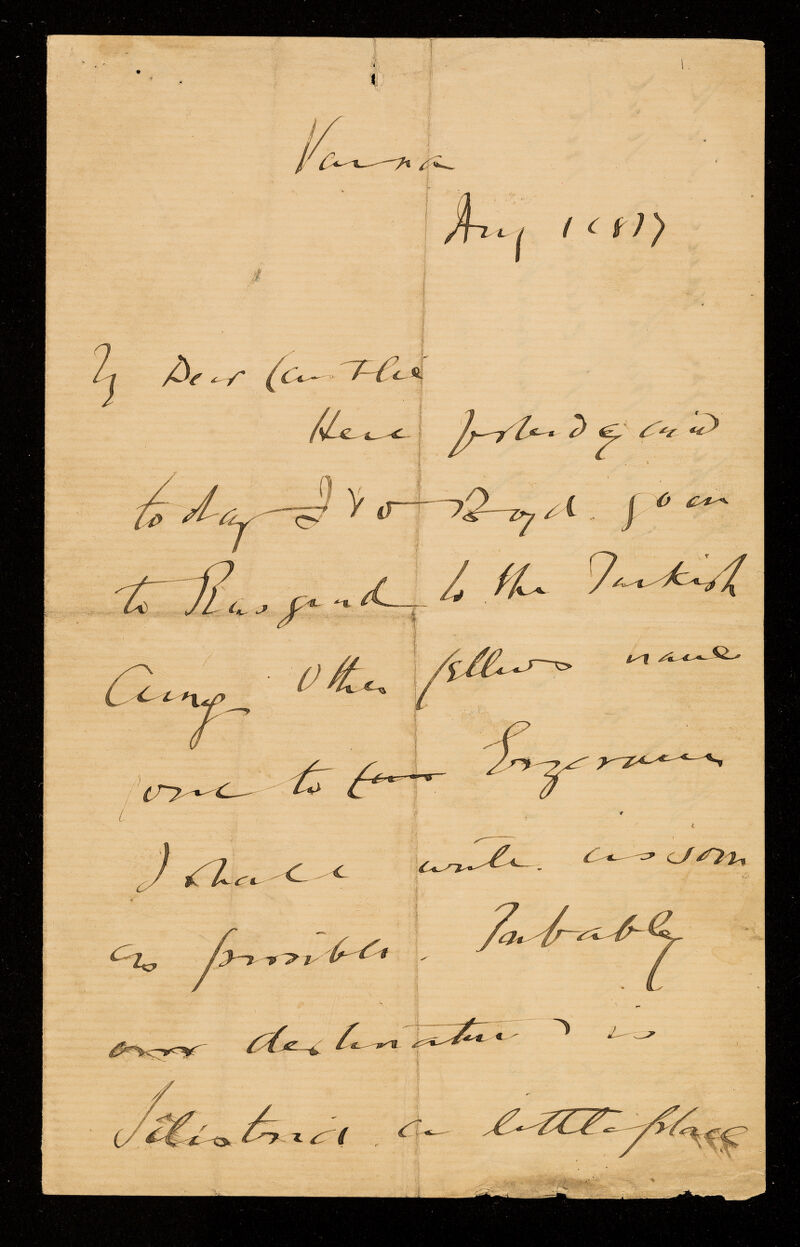 Varna
Aug 1 1877
My Dear Cantlie
Here yesterday and
today I & Boyd go on
to Rasgrad to the Turkish
Army Other fellows have
gone to Erzeroum
I shall write as soon
as possible. Probably
our destination is
Silistria a little place